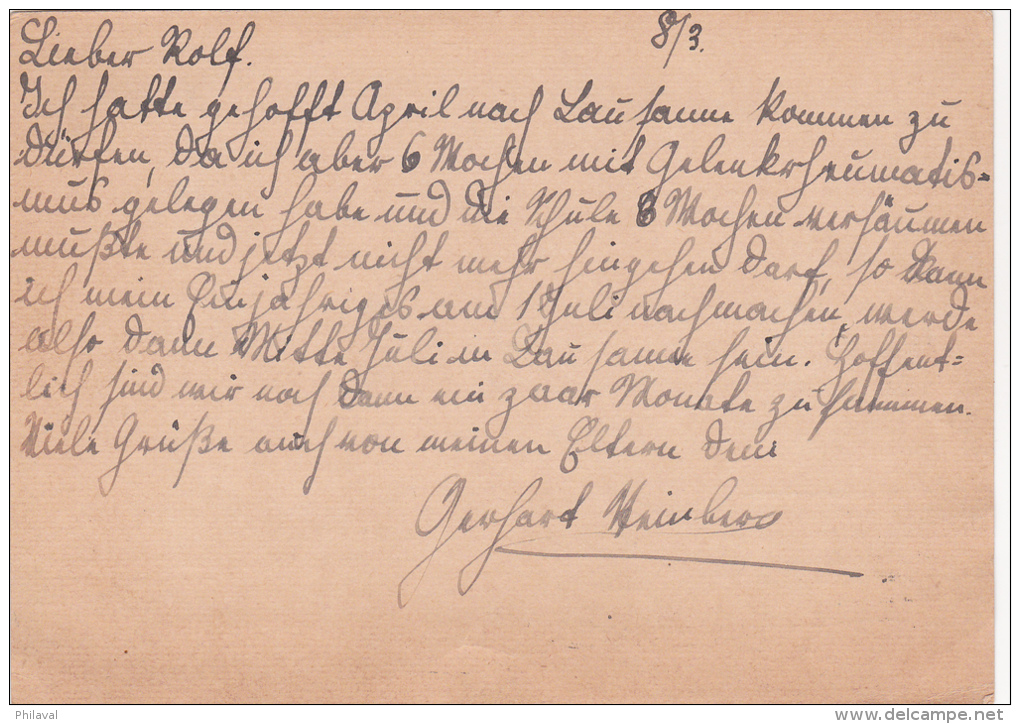 8/3.
Lieber Rolf.
Ich hatte gehofft April nach Lausanne kommen zu
dürfen, da ich aber 6 Wochen mit Gelenkrheumatis=
mus gelegen habe und die Schule 8 Wochen versäumen
mußte und jetzt nicht mehr hingehen darf, so kann
ich mein Einjähriges am 1 Juli nachmachen, werde
also dann Mitte Juli in Lausanne sein. Hoffent=
lich sind wir noch dann ein paar Monate zusammen.
Viele Grüße auch von meinen Eltern dein
Gerhart
Philaval
www.delcampe.net